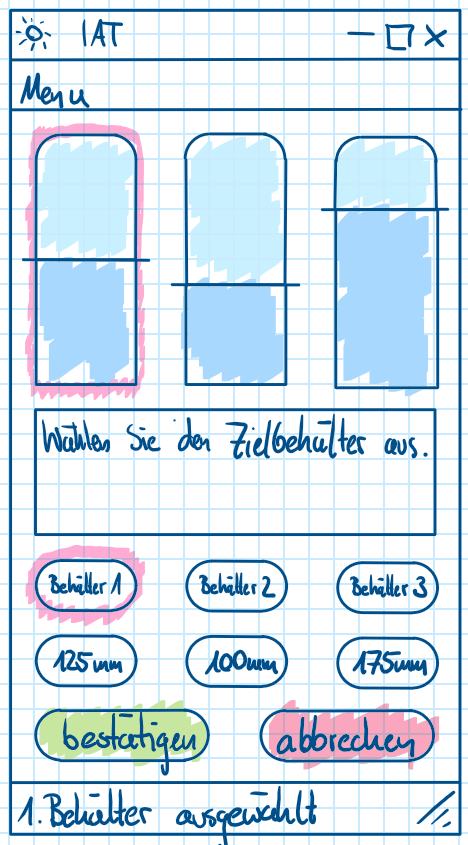 IAT
Menu
Wählen Sie den Zielbehälter aus.
Behälter 1 Behälter 2 Behälter 3
125mm 100mm 175mm
bestätigen abbrechen
1. Behälter ausgewählt